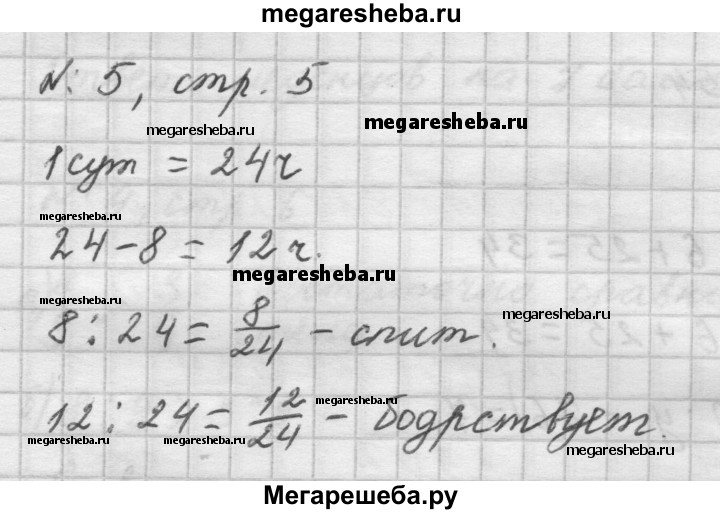 megaresheba.ru
№ 5, стр. 5
megaresheba.ru megaresheba.ru
1 сут = 24 ч
megaresheba.ru
24 - 8 = 12 ч.
megaresheba.ru
megaresheba.ru megaresheba.ru
8 : 24 = 8/24 - спит.
megaresheba.ru
12 : 24 = 12/24 - бодрствует.
megaresheba.ru megaresheba.ru megaresheba.ru
Мегарешеба.ру